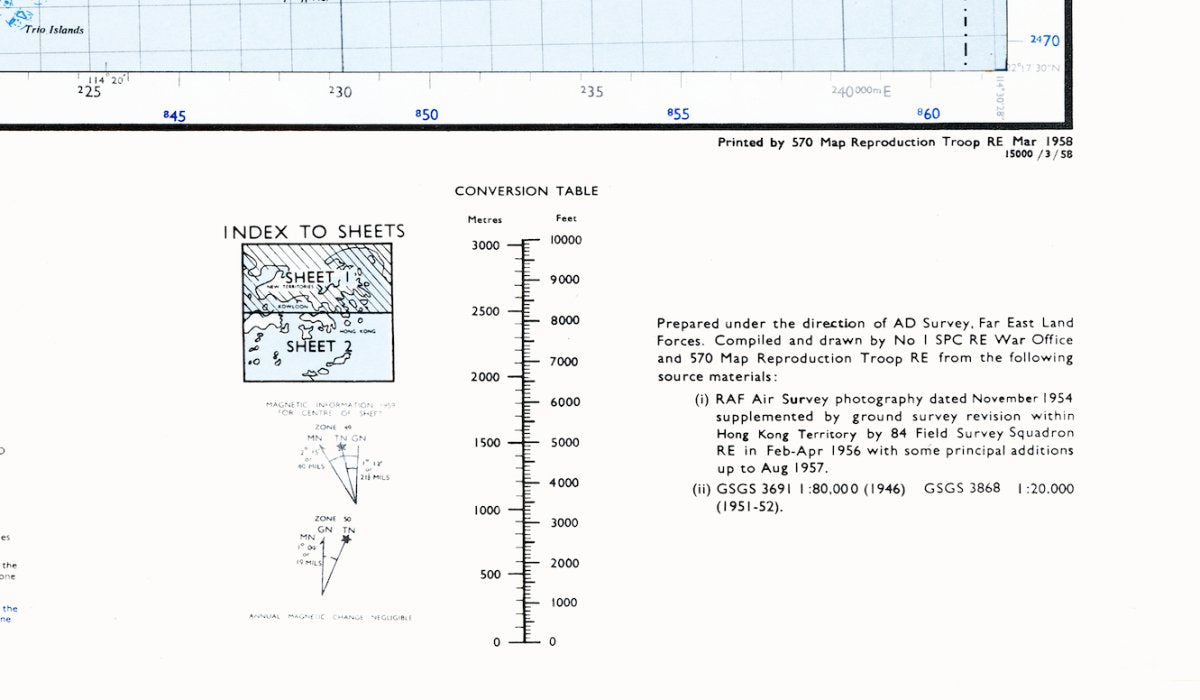 Trio Islands
2470
22°17'30"N
114°20'
225
230
235
240000mE
114°30'28"
845
850
855
860
Printed by 570 Map Reproduction Troop RE Mar 1958
15000/3/58
CONVERSION TABLE
Metres Feet
INDEX TO SHEETS
SHEET 1
NEW TERRITORIES
KOWLOON
HONG KONG
SHEET 2
3000 10000
9000
2500
8000
7000
2000
6000
1500 5000
4000
1000
3000
2000
500
1000
0 0
MAGNETIC INFORMATION 1959
FOR CENTRE OF SHEET
ZONE 49
MN TN GN
or
MILS
MILS
ZONE 50
GN TN
MN
1° 00'
or
19 MILS
ANNUAL MAGNETIC CHANGE NEGLIGIBLE
Prepared under the direction of AD Survey, Far East Land
Forces. Compiled and drawn by No 1 SPC RE War Office
and 570 Map Reproduction Troop RE from the following
source materials:
(i) RAF Air Survey photography dated November 1954
supplemented by ground survey revision within
Hong Kong Territory by 84 Field Survey Squadron
RE in Feb-Apr 1956 with some principal additions
up to Aug 1957.
(ii) GSGS 3691 1:80,000 (1946) GSGS 3868 1:20.000
(1951-52).
es
the
one
the
ne